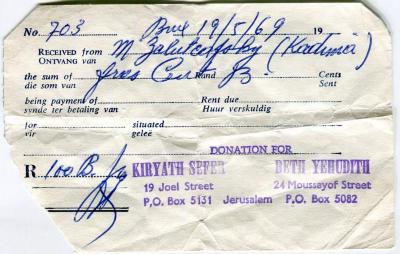 No. 703 Brux 19/5/69 19
RECEIVED from M Zalutcoffsky (Kadima)
ONTVANG van
the sum of Frs Cent Rand B Cents
die som van Sent
being payment of Rent due
synde ter betaling van Huur verskuldig
for situated
vir geleë
DONATION FOR
R 100 B.
KIRYATH SEFER BETH YEHUDITH
19 Joel Street 24 Moussayof Street
P,O. Box 5131 Jerusalem P.O. Box 5082